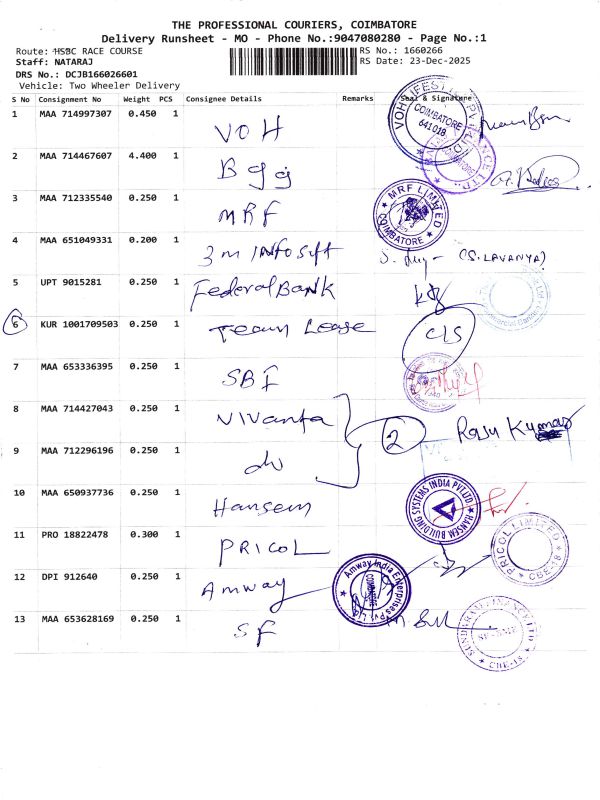 THE PROFESSIONAL COURIERS, COIMBATORE
Delivery Runsheet - MO - Phone No.:9047080280 - Page No.:1
Route: HSBC RACE COURSE RS No.: 1660266
Staff: NATARAJ RS Date: 23-Dec-2025
DRS No.: DCJB166026601
Vehicle: Two Wheeler Delivery
S No Consignment No Weight PCS Consignee Details Remarks Seal & Signature
1 MAA 714997307 0.450 1 VOH
COIMBATORE 641018
2 MAA 714467607 4.400 1
3 MAA 712335540 0.250 1 MRF
MRF LIMITED COIMBATORE
4 MAA 651049331 0.200 1 3m INfosoft (S.LAVANYA)
5 UPT 9015281 0.250 1 Federal Bank
6 KUR 1001709503 0.250 1 Team Lease CLS
7 MAA 653336395 0.250 1 SBI
8 MAA 714427043 0.250 1 Vivanta 2 Raju Kumar
9 MAA 712296196 0.250 1 do
10 MAA 650937736 0.250 1 Hansem
HANSEM BUILDING SYSTEMS INDIA PVT LTD
11 PRO 18822478 0.300 1 PRICOL
PRICOL LIMITED CBE-18
12 DPI 912640 0.250 1 Amway
Amway India Enterprises Pvt. Ltd. COIMBATORE
13 MAA 653628169 0.250 1 SF
SUNDARAM FINANCE LTD CBE-18